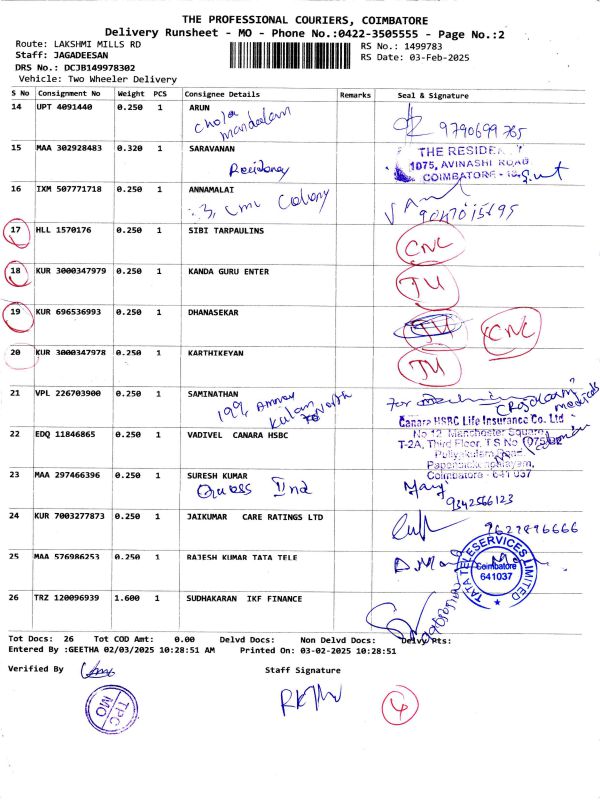 THE PROFESSIONAL COURIERS, COIMBATORE
Delivery Runsheet - MO - Phone No.:0422-3505555 - Page No.:2
Route: LAKSHMI MILLS RD
RS No.: 1499783
Staff: JAGADEESAN
RS Date: 03-Feb-2025
DRS No.: DCJB149978302
Vehicle: Two Wheeler Delivery
S No Consignment No Weight PCS Consignee Details Remarks Seal & Signature
14 UPT 4091440 0.250 1 ARUN
Chola mandalam
9790699765
15 MAA 302928483 0.320 1 SARAVANAN
Residency
THE RESIDENCY
1075, AVINASHI ROAD
COIMBATORE - 18
16 IXM 507771718 0.250 1 ANNAMALAI
3, CMC Colony
17 HLL 1570176 0.250 1 SIBI TARPAULINS
CNC
18 KUR 3000347979 0.250 1 KANDA GURU ENTER
JU
19 KUR 696536993 0.250 1 DHANASEKAR
CNC
20 KUR 3000347978 0.250 1 KARTHIKEYAN
JU
21 VPL 226703900 0.250 1 SAMINATHAN
199, Amman Kulam
For
medicals
22 EDQ 11846865 0.250 1 VADIVEL CANARA HSBC
Canara HSBC Life Insurance Co. Ltd
No.12, Manchester Square,
T-2A, Third Floor, T S No
Puliyakulam Road,
Papanaickenpalayam,
Coimbatore - 641 037
23 MAA 297466396 0.250 1 SURESH KUMAR
Quess IInd
9342566123
24 KUR 7003277873 0.250 1 JAIKUMAR CARE RATINGS LTD
9627896666
25 MAA 576986253 0.250 1 RAJESH KUMAR TATA TELE
TATA TELESERVICES LIMITED
Coimbatore
641037
26 TRZ 120096939 1.600 1 SUDHAKARAN IKF FINANCE
Tot Docs: 26 Tot COD Amt: 0.00 Delvd Docs: Non Delvd Docs: Delvy Pts:
Entered By :GEETHA 02/03/2025 10:28:51 AM Printed On: 03-02-2025 10:28:51
Verified By
Staff Signature
TPC
MO
4